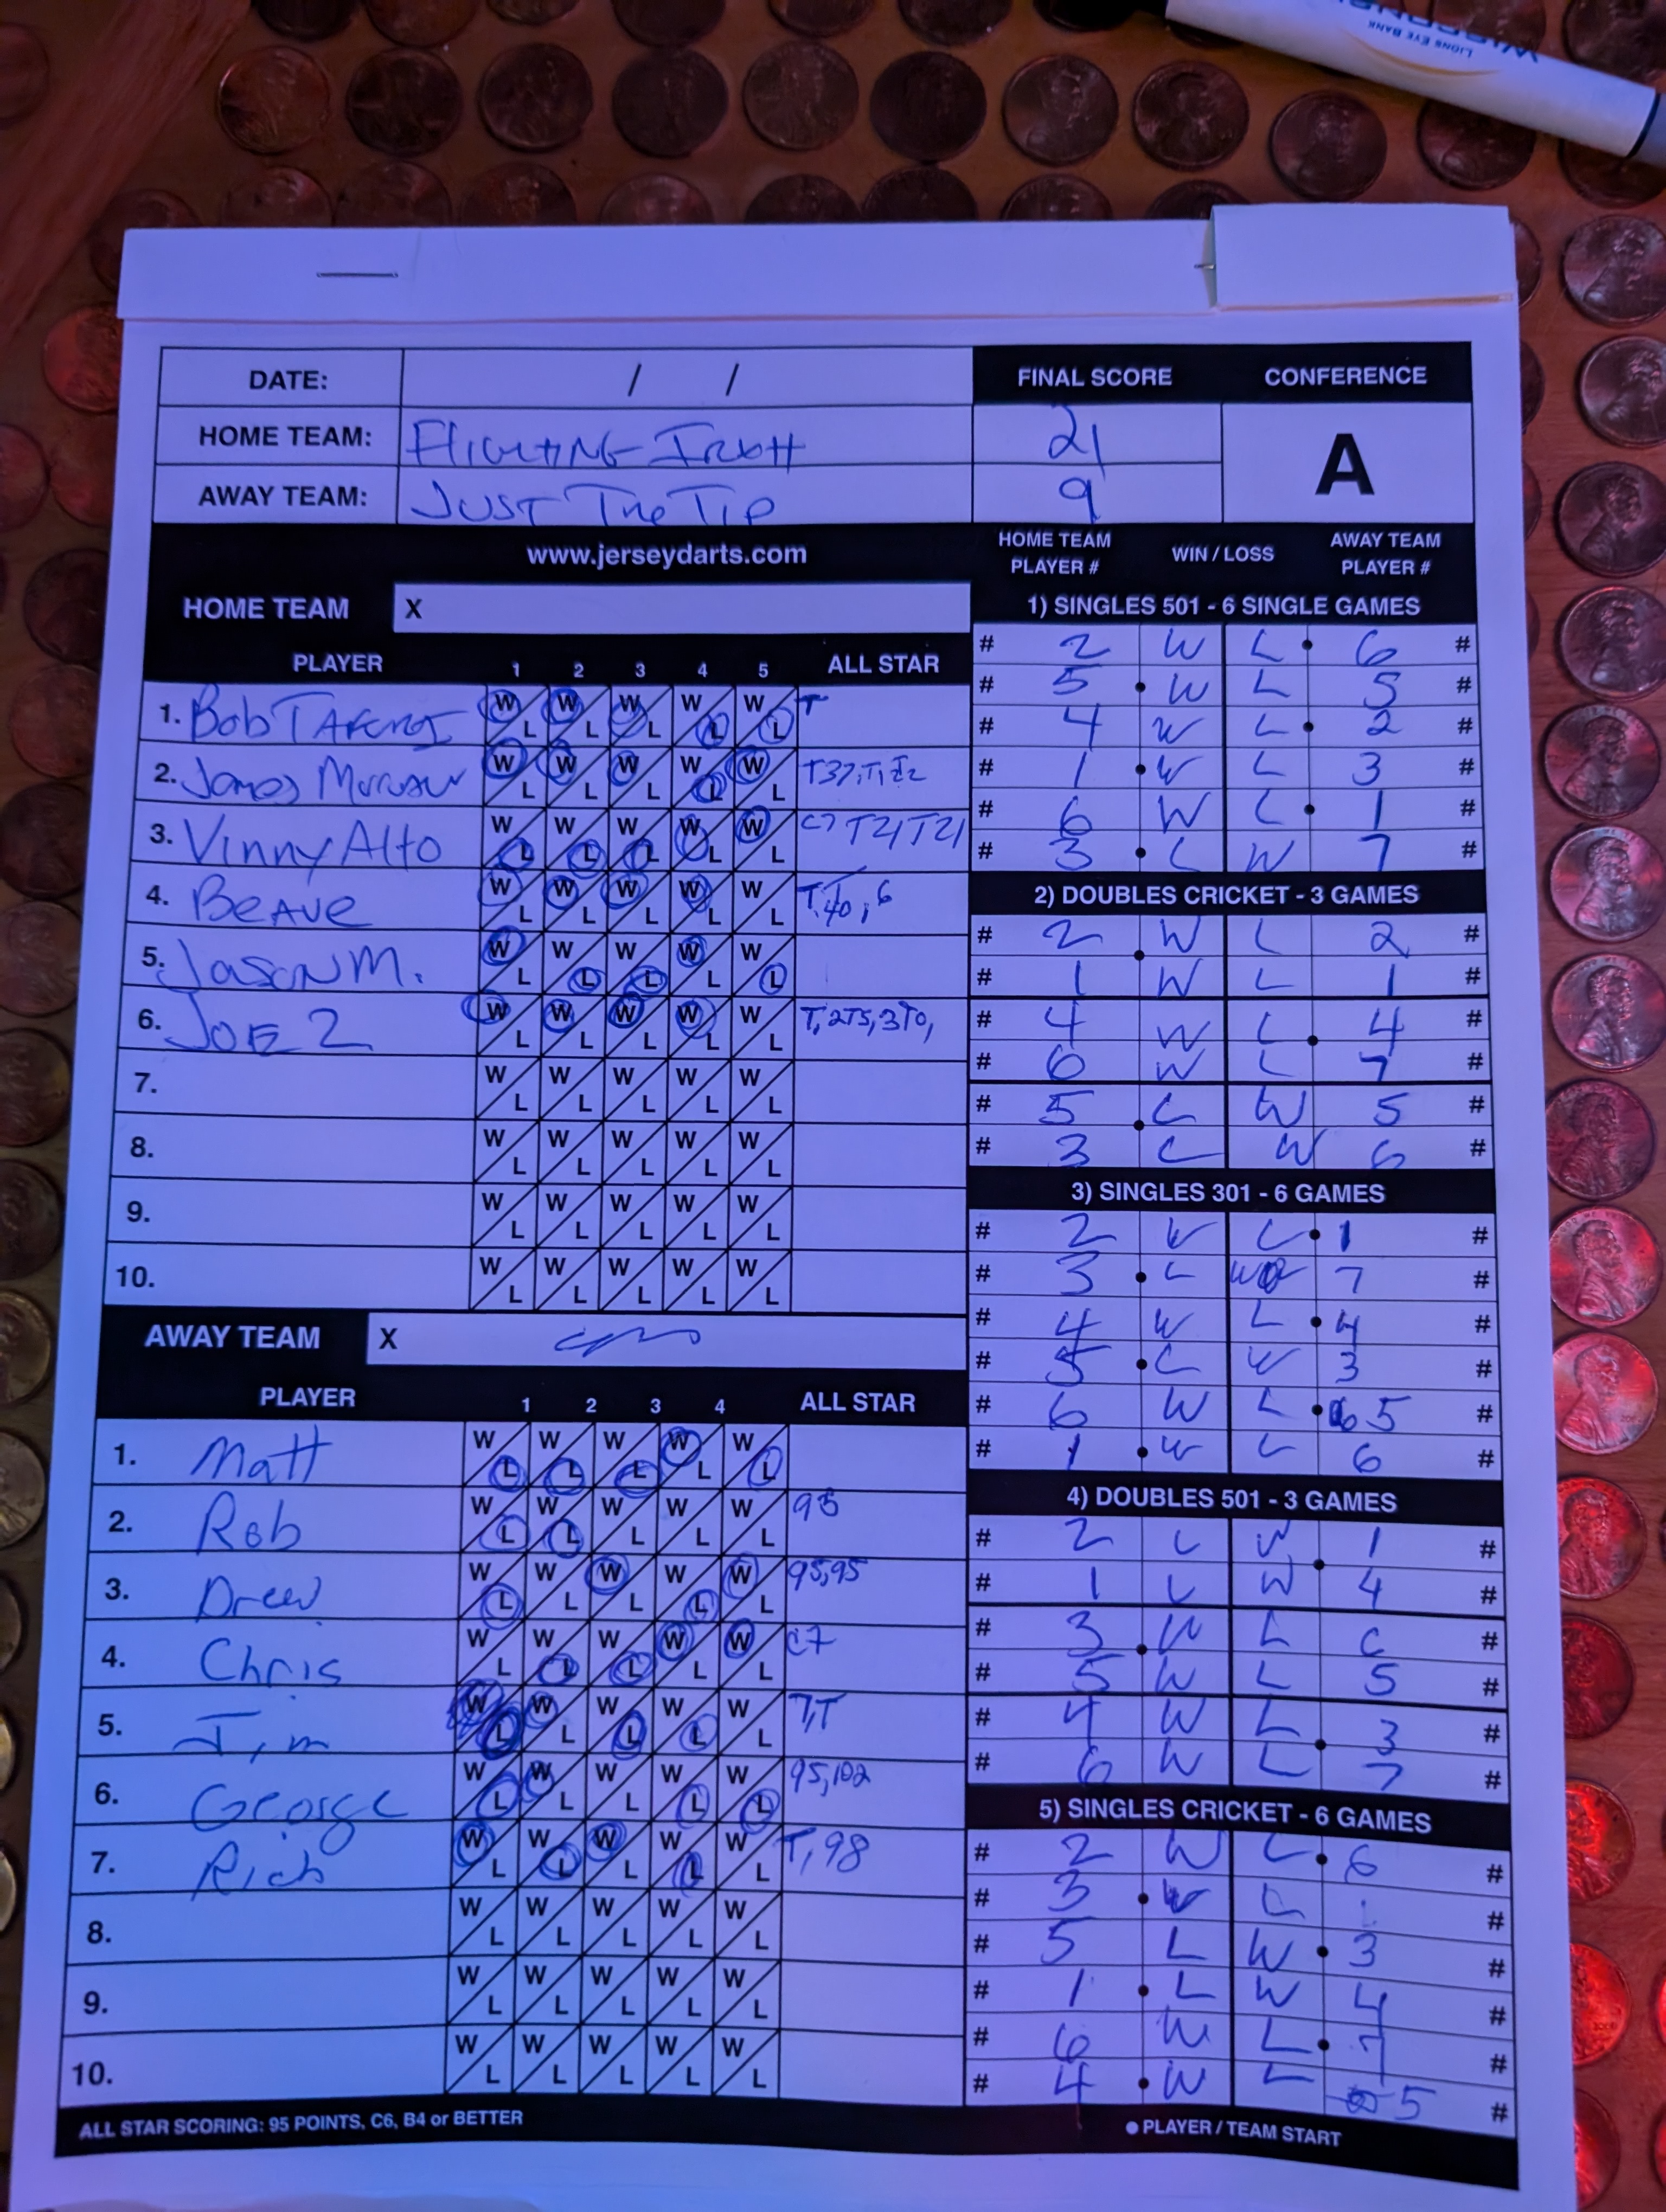 LIONS EYE BANK
DATE: / /
FINAL SCORE CONFERENCE
HOME TEAM: 21
A
AWAY TEAM: JUST The TIP 9
www.jerseydarts.com
HOME TEAM PLAYER # WIN / LOSS AWAY TEAM PLAYER #
HOME TEAM X
PLAYER 1 2 3 4 5 ALL STAR
1. Bob W L W L W L W L W L T
2. James W L W L W L W L W L
3. Vinny Alto W L W L W L W L W L C7 T21 T21
4. BeAve W L W L W L W L W L T, 40, 6
5. JASON M. W L W L W L W L W L
6. JOE Z W L W L W L W L W L
7. W L W L W L W L W L
8. W L W L W L W L W L
9. W L W L W L W L W L
10. W L W L W L W L W L
AWAY TEAM X
PLAYER 1 2 3 4 ALL STAR
1. Matt W L W L W L W L W L
2. Rob W L W L W L W L W L 95
3. Drew W L W L W L W L W L 95,95
4. Chris W L W L W L W L W L C7
5. Jim W L W L W L W L W L T,T
6. George W L W L W L W L W L 95,102
7. Rich W L W L W L W L W L T, 98
8. W L W L W L W L W L
9. W L W L W L W L W L
10. W L W L W L W L W L
ALL STAR SCORING: 95 POINTS, C6, B4 or BETTER
1) SINGLES 501 - 6 SINGLE GAMES
# 2 W L 6 #
# 5 W L 5 #
# 4 W L 2 #
# 1 W L 3 #
# 6 W L 1 #
# 3 L W 7 #
2) DOUBLES CRICKET - 3 GAMES
# 2 W L 2 #
# 1 W L 1 #
# 4 W L 4 #
# 6 W L 7 #
# 5 L W 5 #
# 3 L W 6 #
3) SINGLES 301 - 6 GAMES
# 2 W L 1 #
# 3 L W 7 #
# 4 W L 4 #
# 5 L W 3 #
# 6 W L 5 #
# 1 W L 6 #
4) DOUBLES 501 - 3 GAMES
# 2 L W 1 #
# 1 L W 4 #
# 3 W L 6 #
# 5 W L 5 #
# 4 W L 3 #
# 6 W L 7 #
5) SINGLES CRICKET - 6 GAMES
# 2 W L 6 #
# 3 W L #
# 5 L W 3 #
# 1 L W 4 #
# 6 W L 7 #
# 4 W L 5 #
PLAYER / TEAM START